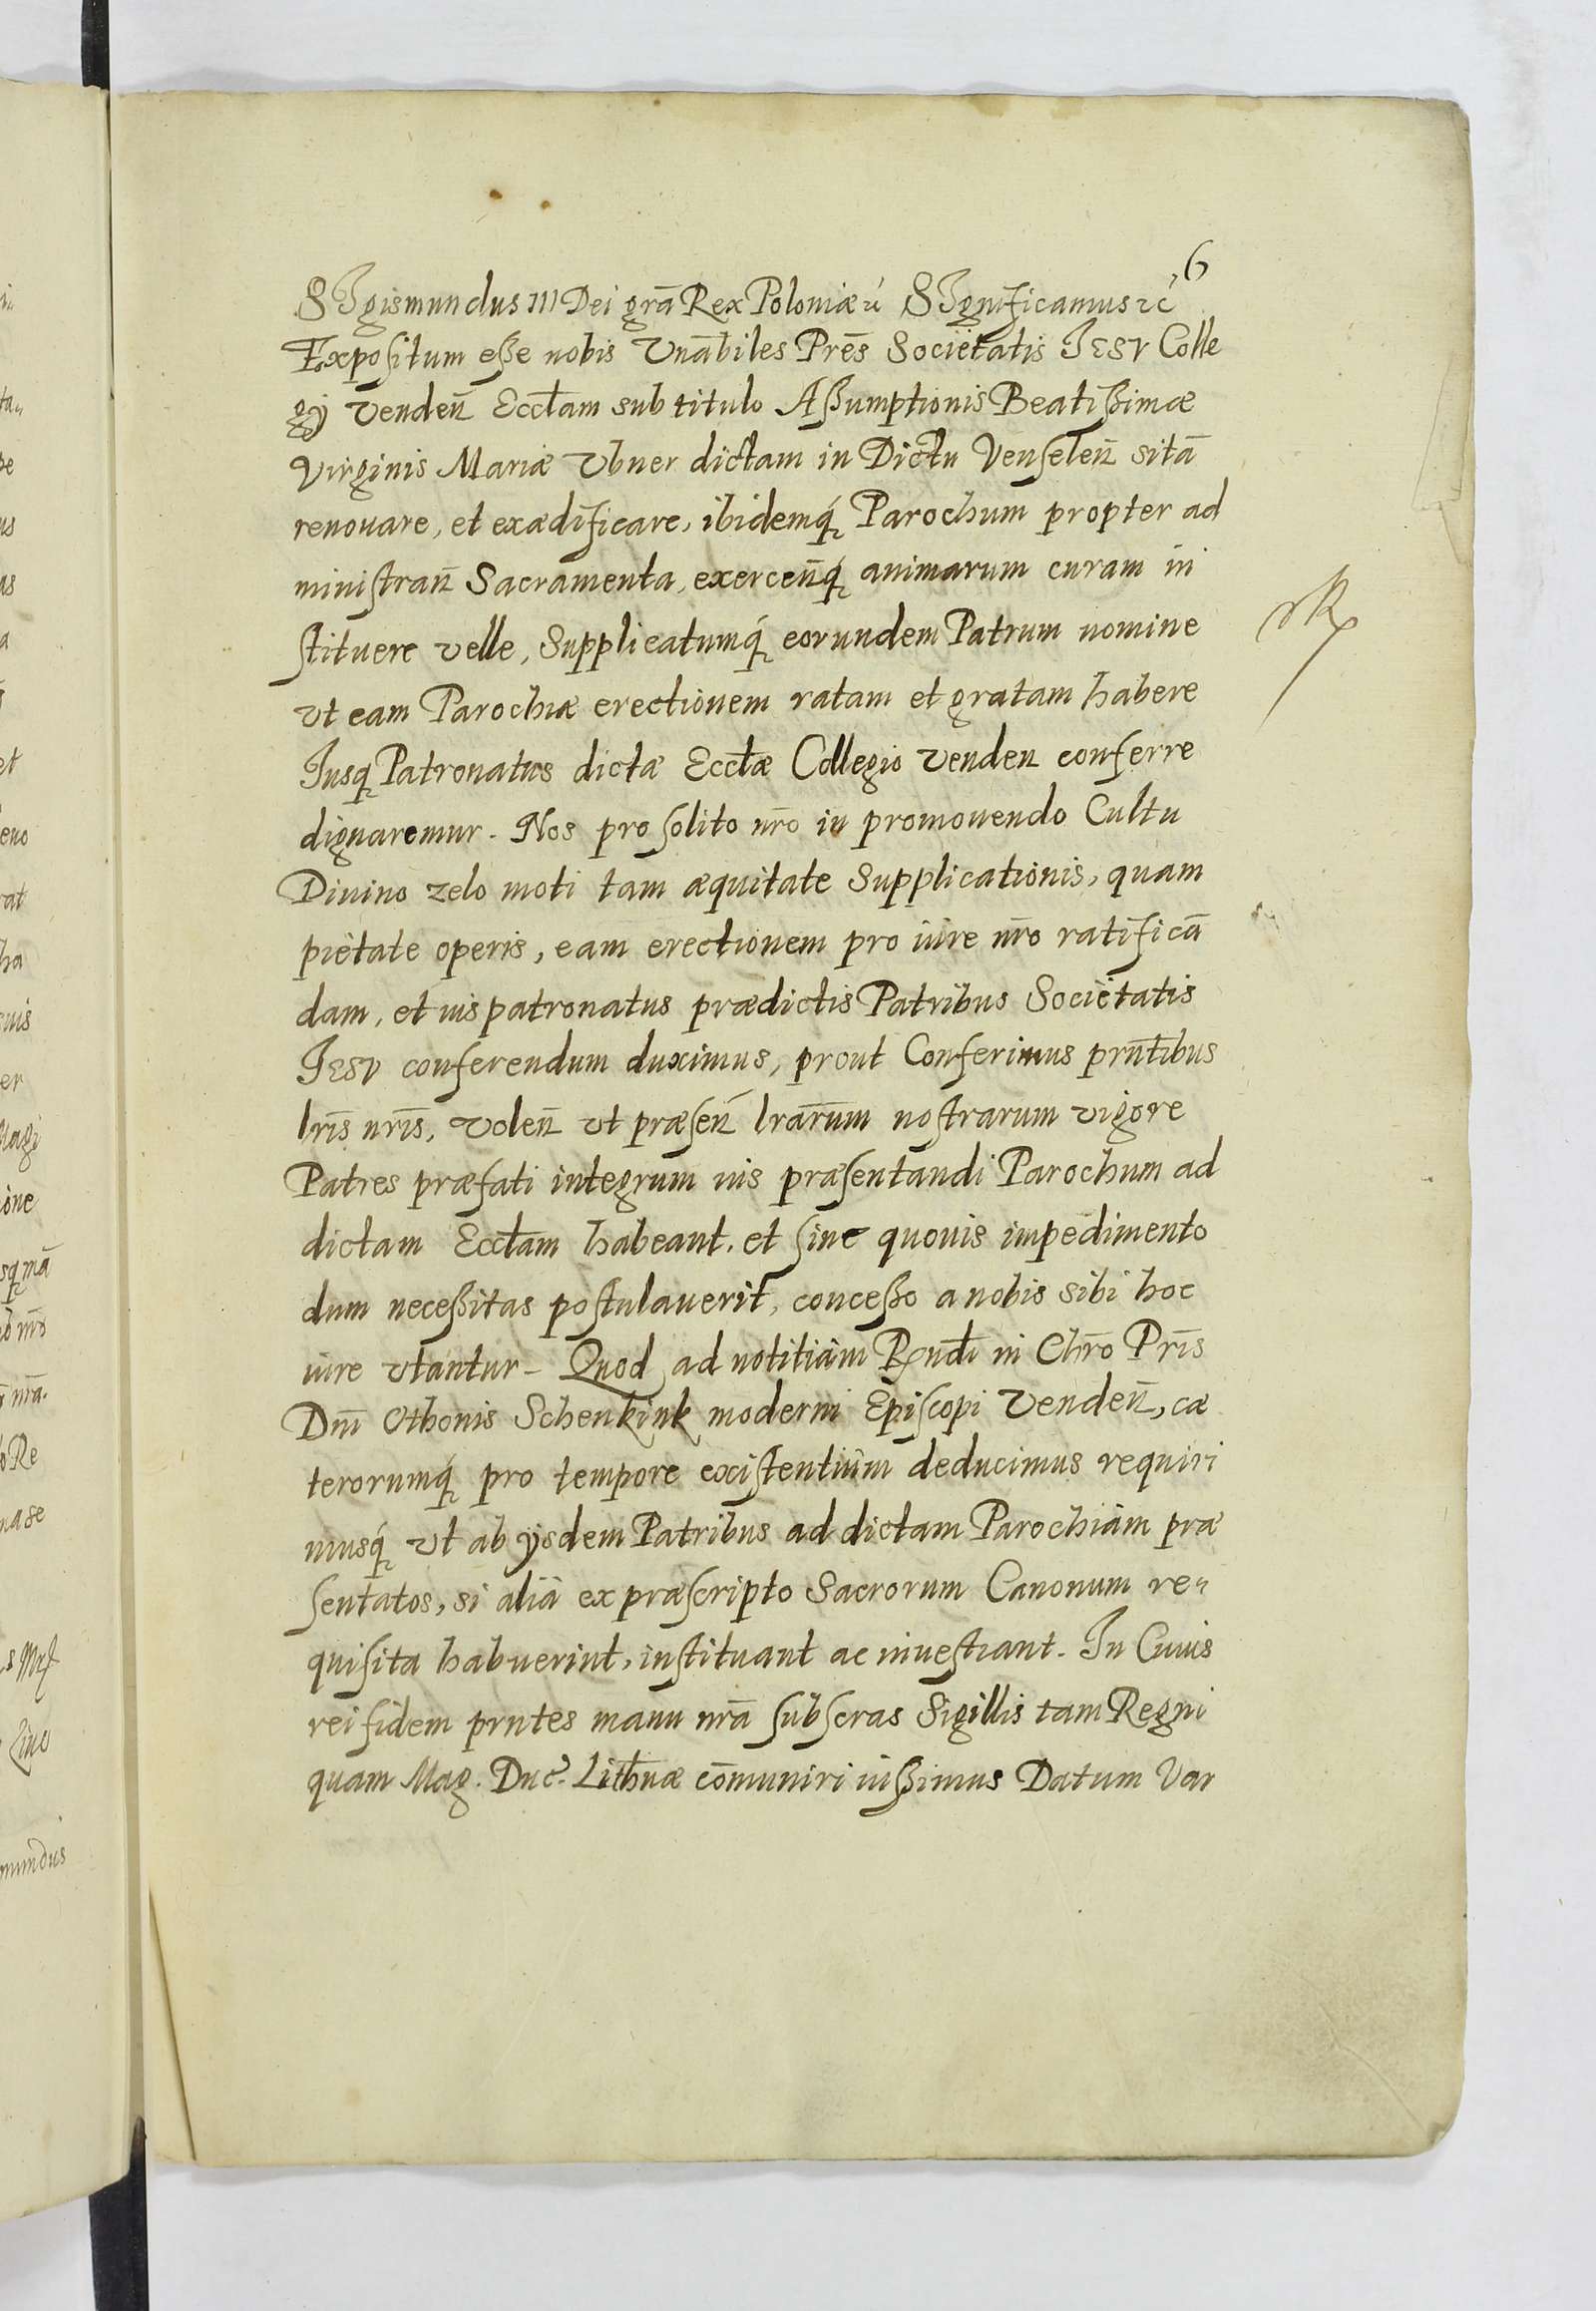 6
SIgismundus III Dei grā Rex Poloniæ ⁊c̄ SIgnificamus ⁊c̄
Expositum eße nobis Vnābiles Prēs Societatis IESV Colle
gÿ Venden̄ Eccłam sub titulo Aßumptionis Beatißimæ
Virginis Mariæ Vbner dictam in Dictu Venselen̄ sitā
renouare, et exædificare, ibidemq́ Parochum propter ad
ministran̄ Sacramenta, exercen̄q́ animarum curam in
stituere velle, Supplicatumq́ eorundem Patrum nomine
vt eam Parochiæ erectionem ratam et gratam habere
Iusq́ Patronatus dictæ Eccłæ Collegio Venden conferre
dignaremur. Nos pro solito nr̄o in promouendo Cultu
Diuino zelo moti tam æquitate Supplicationis, quam
pietate operis, eam erectionem pro iure nr̄o ratificā
dam, et ius patronatus prædictis Patribus Societatis
IESV conferendum duximus, prout Conferimus prn̄tibus
lrīs nrīs, volen̄ vt præsen̄ lrarūm nostrarum vigore
Patres præfati integrum ius præsentandi Parochum ad
dictam Eccłam habeant, et sine quouis impedimento
dum neceßitas postulauerit, conceßo a nobis sibi hoc
iure vtantur - Quod ad notitiam Rndī in Chrō Prīs
Dnī Othonis Schenkink moderni Episcopi Venden̄, cæ
terorumq́ pro tempore existentium deducimus requiri
musq́ vt ab ÿsdem Patribus ad dictam Parochiam præ
sentatos, si aliā ex præscripto Sacrorum Canonum re-
quisita habuerint, instituant ac inuestiant. In Cuius
rei fidem prntes manu nrā subscras Sigillis tam Regni
quam Mag. Duc̄. Lithuæ cōmuniri iußimus Datum Var